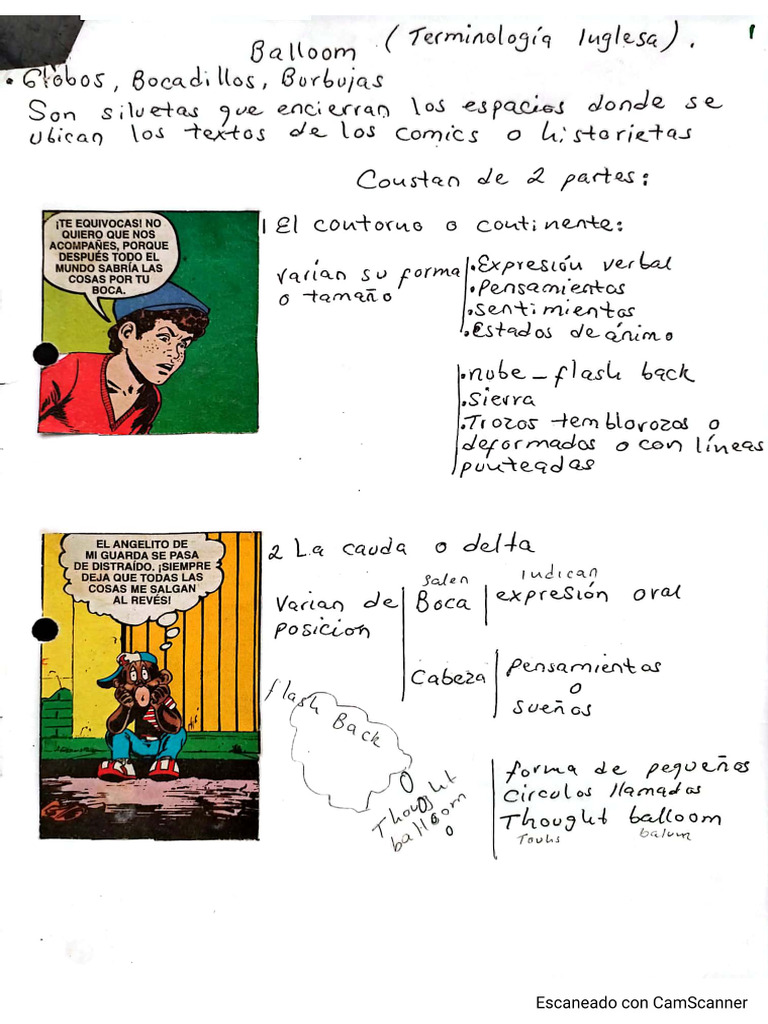 1
Balloom (Terminología Inglesa).
• Globos, Bocadillos, Burbujas
Son siluetas que encierran los espacios donde se
ubican los textos de los comics o historietas
Constan de 2 partes:
¡TE EQUIVOCAS! NO
QUIERO QUE NOS
ACOMPAÑES, PORQUE
DESPUÉS TODO EL
MUNDO SABRÍA LAS
COSAS POR TU
BOCA.
1 El contorno o continente:
varían su forma
o tamaño
•Expresión verbal
•Pensamientos
•sentimientos
•Estados de ánimo
•nube – flash back
•Sierra
•Trozos temblorozos o
deformados o con líneas
punteadas
EL ANGELITO DE
MI GUARDA SE PASA
DE DISTRAÍDO. ¡SIEMPRE
DEJA QUE TODAS LAS
COSAS ME SALGAN
AL REVÉS!
2 La cauda o delta
Varian de
posicion
salen
Boca
indican
expresión oral
Cabeza
Pensamientos
o
sueños
flash Back
Thought
balloom
forma de pequeños
circulos llamados
Thought balloom
Touhs balum
Escaneado con CamScanner